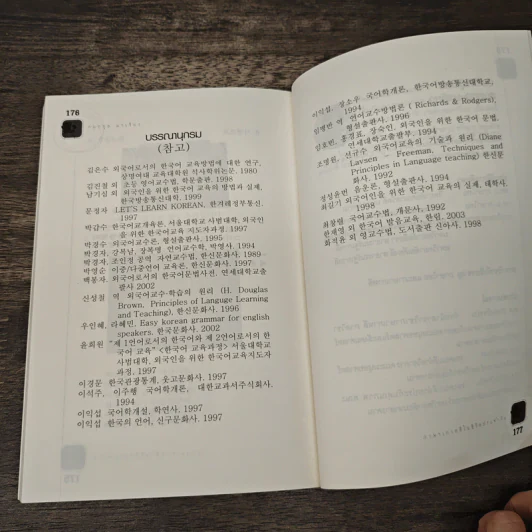 176
บรรณานุกรม
(참고)
김은수 외국어로서의 한국어 교육방법에 대한 연구,
상명여대 교육대학원 석사학위논문, 1980
김진철 외 초등 영어교수법, 학문출판, 1998
남기심 외 외국인을 위한 한국어 교육의 방법과 실제,
한국방송통신대학, 1999
문정자 LET'S LEARN KOREAN, 한겨레정부통신,
1997
박갑수 한국어교개육론, 서울대학교 사범대학, 외국인
을 위한 한국어교육 지도자과정. 1997
박경수 외국어교수론, 형설출판사, 1995
박경자, 강복남, 장복명, 언어교수학, 박영사. 1994
박경자, 조인정 공역 자연교수법, 한신문화사, 1989
박영순 이중/다중언어 교육론, 한신문화사. 1997
백봉자. 외국어로서의 한국어문법사전, 연세대학교출
팔사 2002
신성철 역 외국어교수·학습의 원리 (H. Douglas
Brown. Principles of Languge Learning
and Teaching), 한신문화사, 1996
우인혜, 라혜민, Easy korean grammar for english
speakers. 한국문화사. 2002
윤희원 "제 1언어로서의 한국어와 제 2언어로서의 한
국어 교육" <한국어 교육과정> 서울대학교
사범대학, 외국인을 위한 한국어교육지도자
과정, 1997
이경문 한국관광통계, 웃고문화사. 1997
이석주, 이주행 국어학개론, 대한교과서주식회사,
1994
이익섭 국어학개설, 학연사. 1997
이익섭 한국의 언어, 신구문화사. 1997
이익섭, 장소우 국어학개론, 한국어방송통신대학교,
1994
임병빈 역 언어교수방법론 ( Richards & Rodgers),
형설출판사. 1996
임호빈, 홍경표, 장숙인, 외국인을 위한 한국어 문법,
연세대학교출팔부, 1994
조명원, 선규수 외국어교육의 기술과 원리 (Diane
Lavsen - Freeman. Techniques and
Principles in Language teaching) 한신문
화사, 1992
정상윤변 음운론, 형설출판사, 1994
최길기 외국인을 위한 한국어 교육의 실제, 대학사,
1998
최창렬 국어교수법, 개문사, 1992
한재영 외 한국어 발음교육, 한림, 2003
화적윤 외 영교수법, 도서출판 신아사, 1998
177